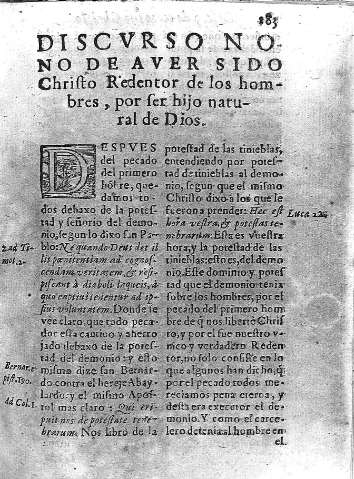 185
DISCVRSO NO-
NO DE AVER SIDO
Christo Redentor de los hom-
bres, por ser hijo natu-
ral de Dios.
DESPVES
del pecado
del primero
hõbre, que-
damos to-
dos debaxo de la potes-
tad y señorio del demo-
nio, segun lo dixo san Pa-
blo: Ne quando Deus det il-
lis pœnitentiam ad cognos-
cendam veritatem, & resi-
piscant à diaboli laqueis, à
quo captiui tenentur ad ip-
sius voluntatem. Donde se
vee claro, que todo peca-
dor esta cautiuo y aherro
jado debaxo de la potes-
tad del demonio: y esto
mismo dize san Bernar-
do contra el hereje Abay-
lardo: y el mismo Apos-
tol mas claro: Qui eri-
puit nos de potestate tene-
brarum. Nos libro de la
2. ad Ti-
mot. 2.
Bernar. e
pist. 190.
ad Col. 1.
potestad de las tinieblas,
entendiendo por potes-
tad de tinieblas al demo-
nio, segun que el mismo
Christo dixo à los que le
fueron a prender: Hæc est
hora vestra, & potestas te-
nebrarum. Esta es vuestra
hora, y la potestad de las
tinieblas: esto es, del demo-
nio. Este dominio y potes-
tad que el demonio tenia
sobre los hombres, por el
pecado del primer hombre
de q̃ nos libertò Chris-
to, y por el fue nuestro v-
nico y verdadero Reden-
tor, no solo consiste en lo
que algunos han dicho, q̃
por el pecado todos me-
reciamos pena eterna, y
desta era executor el de-
monio. Y como el carce-
lero detenia al hombre en
el
Luca 22.